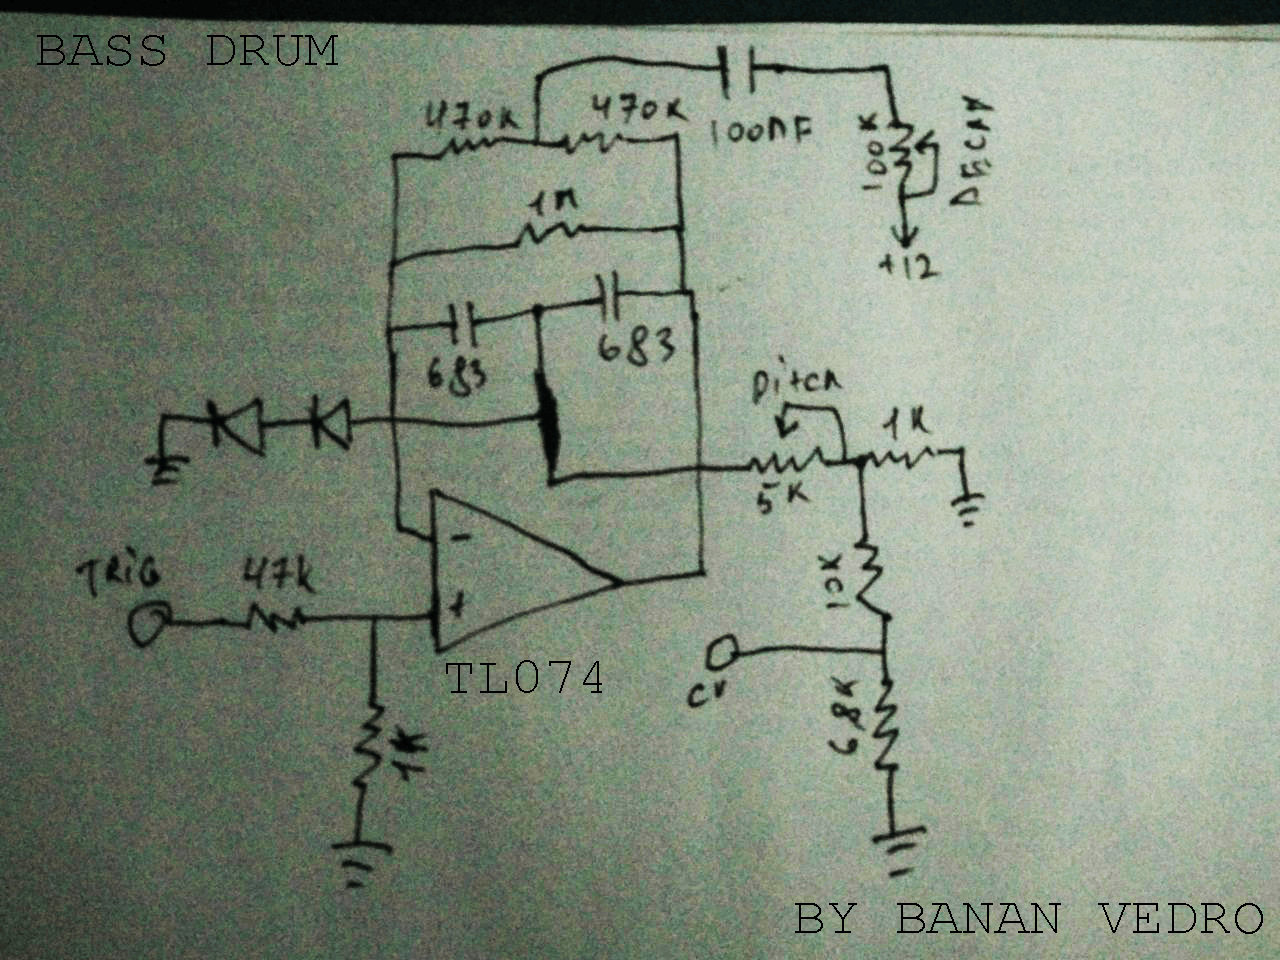 BASS DRUM
470K
470K
100nF
100K
DECAY
+12
1M
683
683
Pitch
5K
1K
-
TRiG
47k
+
TL074
10K
CV
1K
68K
BY BANAN VEDRO